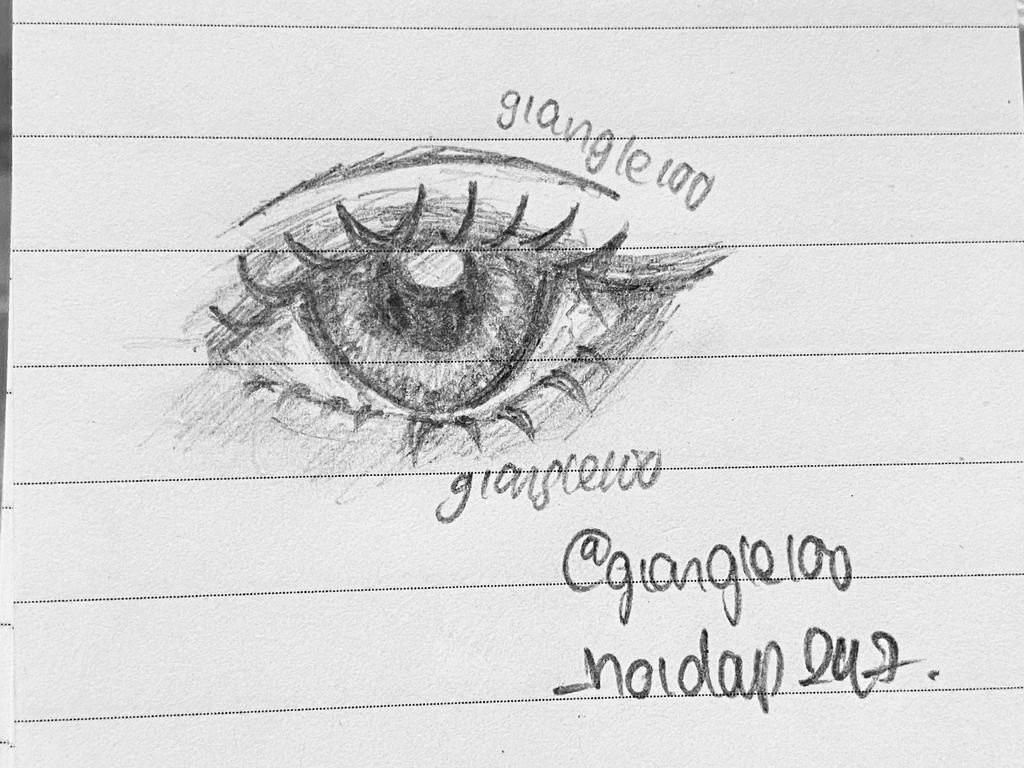 giangle100
giangle100
@giangle100
_hoidap247.